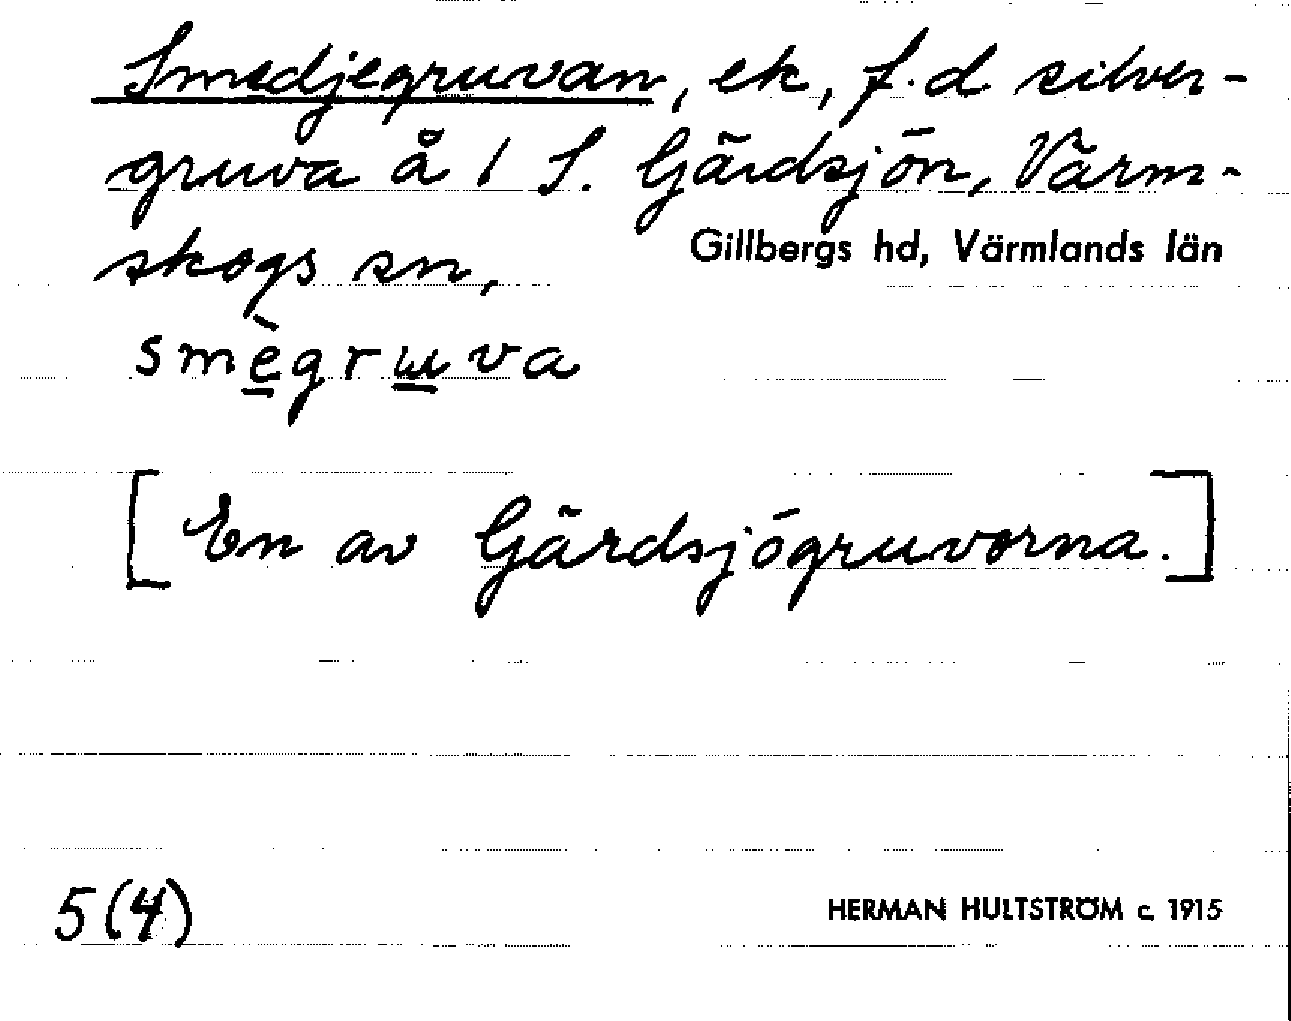 Smedjegruvan, ek, f.d. silver-
gruva å 1 S. Gärdsjön, Värm-
skogs sn,
Gillbergs hd, Värmlands län
smègruva
[En av Gärdsjögruvorna.]
5(4)
HERMAN HULTSTRÖM c. 1915